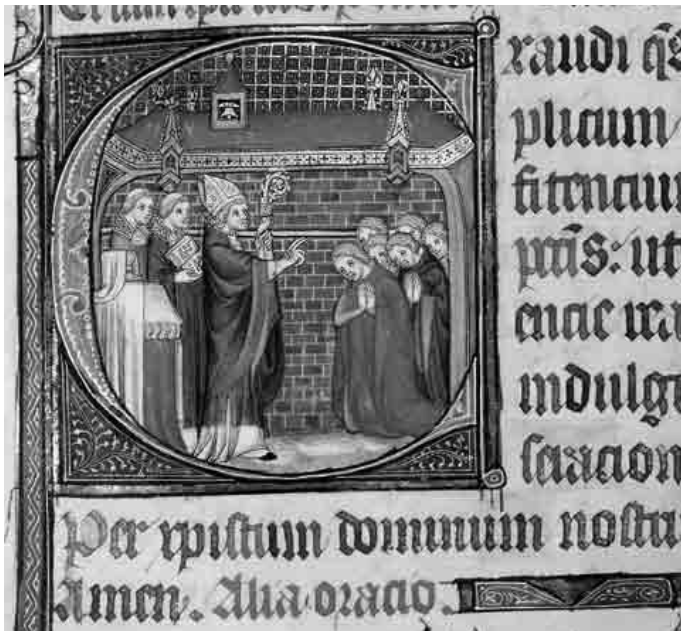 Exaudi q̃s
plicum
fitenciu
pctĩs: ut
indulge
ciacion
Per xpistum dominum nostru
Amen. Alia oracio.